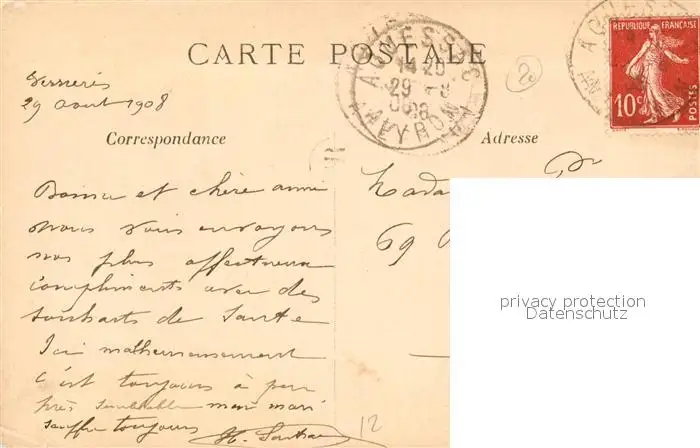 CARTE POSTALE
29 août 1908
AGUESSAC
14 20
29 -8
08
AVEYRON
20
REPUBLIQUE FRANÇAISE
10c
POSTES
Correspondance
Adresse
Bonne et chère amie
nous vous envoyons
nos plus affectueux
compliments avec des
souhaits de Santé
Ici malheureusement
c'est toujours à peu
près semblable mon mari
souffre toujours
Mada
69
12
privacy protection
Datenschutz